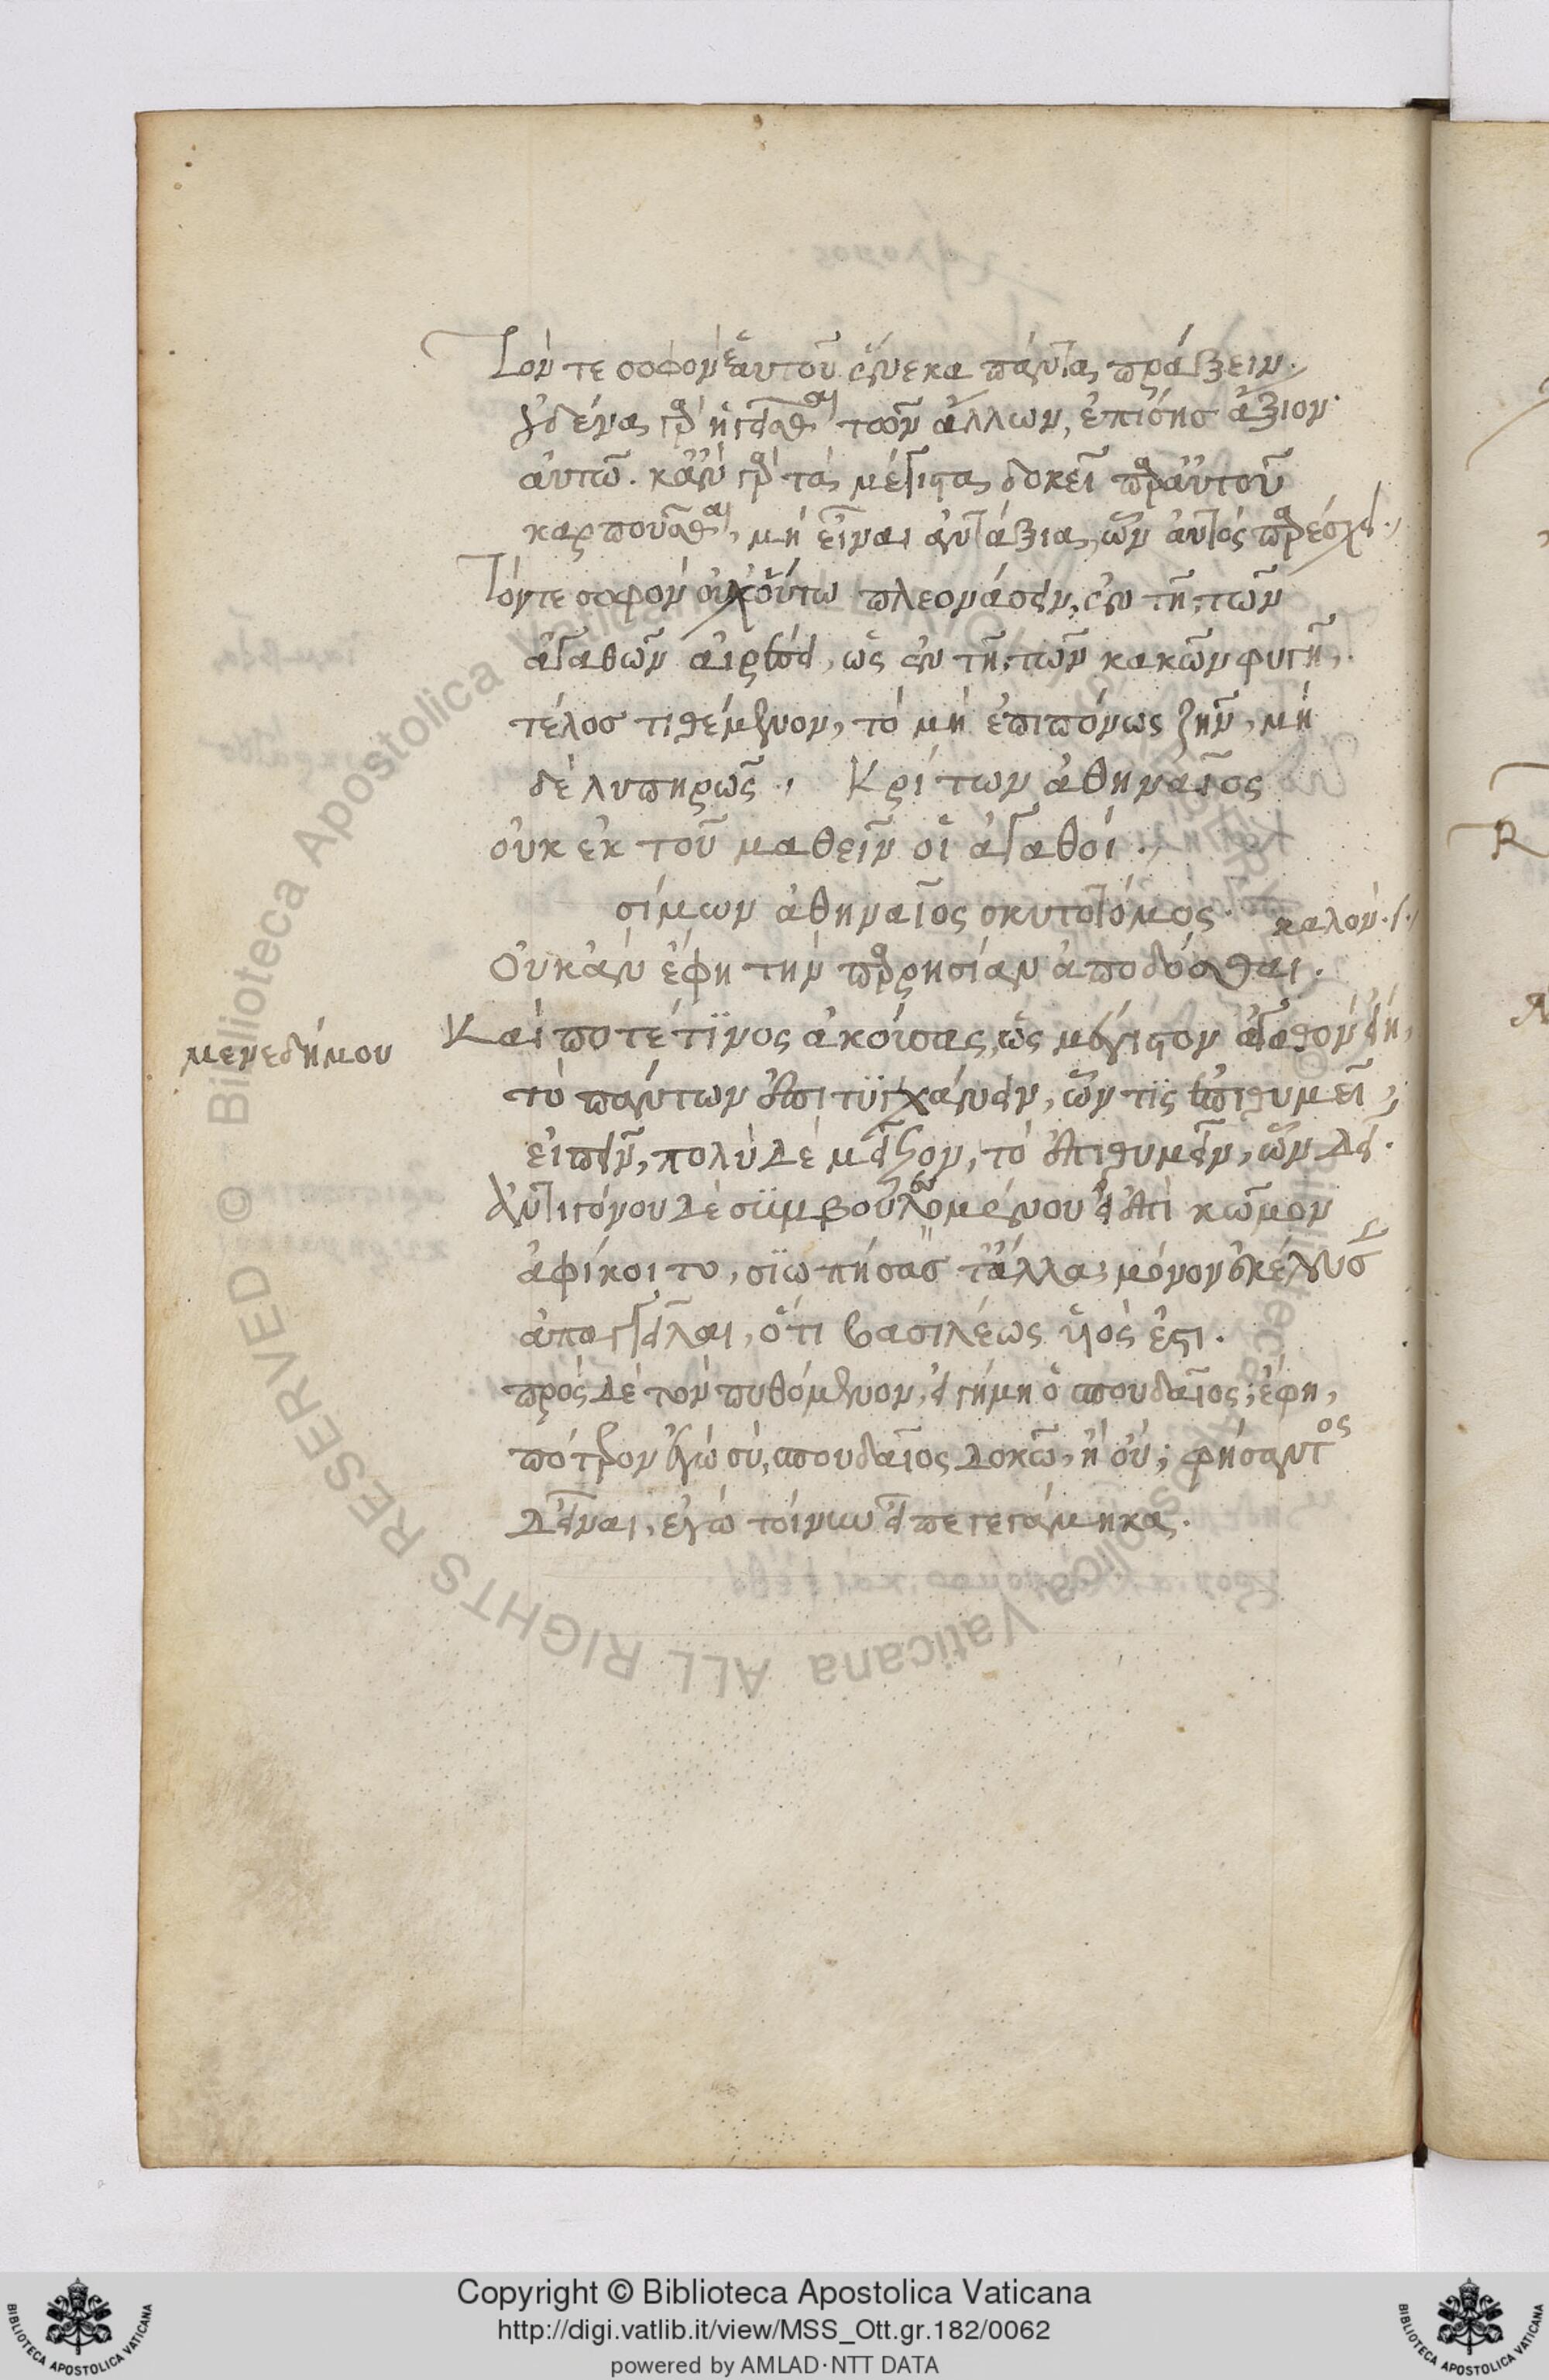 Τόν τε σοφὸν ἑαυτοῦ ἕνεκα πάντα πράξειν.
οὐδένα γὰρ ἡγεῖσθαι τῶν ἄλλων, ἐπίσης ἄξιον
αὐτῷ. κἂν γὰρ τὰ μέγιστα δοκεῖ παρὰ αὐτοῦ
καρποῦσθαι, μὴ εἶναι ἀντάξια, ὧν αὐτὸς παρέσχει.
Τόν τε σοφὸν οὐχ οὕτω πλεονάσειν, ἐν τῇ τῶν
ἀγαθῶν αἱρέσει, ὡς ἐν τῇ τῶν κακῶν φυγῇ,
τέλος τιθέμενον, τὸ μὴ ἐπιπόνως ζῆν, μὴ
δὲ λυπηρῶς. Κρίτων ἀθηναῖος
οὐκ ἐκ τοῦ μαθεῖν οἱ ἀγαθοί.
σίμων ἀθηναῖος σκυτοτόμος. καλόν.
Οὐκ ἂν ἔφη τὴν παρρησίαν ἀποδόσθαι.
μενεδήμου
Καί ποτέ τινος ἀκούσας, ὡς μέγιστον ἀγαθὸν εἴη,
τὸ πάντων ἐπιτυγχάνειν, ὧν τις ἐπιθυμεῖ,
εἰπεῖν, πολὺ δὲ μεῖζον, τὸ ἐπιθυμεῖν, ὧν δεῖ.
Ἀντιγόνου δὲ συμβουλομένου εἰ ἐπὶ κῶμον
ἀφίκοιτο, σιωπήσας τἄλλα, μόνον ἐκέλευσ
ἀπαγγεῖλαι, ὅτι βασιλέως υἱός ἐστι.
πρὸς δὲ τὸν πυθόμενον, εἰ γήμῃ ὁ σπουδαῖος, ἔφη,
πότερον ἐγώ σοι σπουδαῖος δοκῶ, ἢ οὔ; φήσαντος
δ' εἶναι, ἐγὼ τοίνυν εἶπε γεγάμηκα.